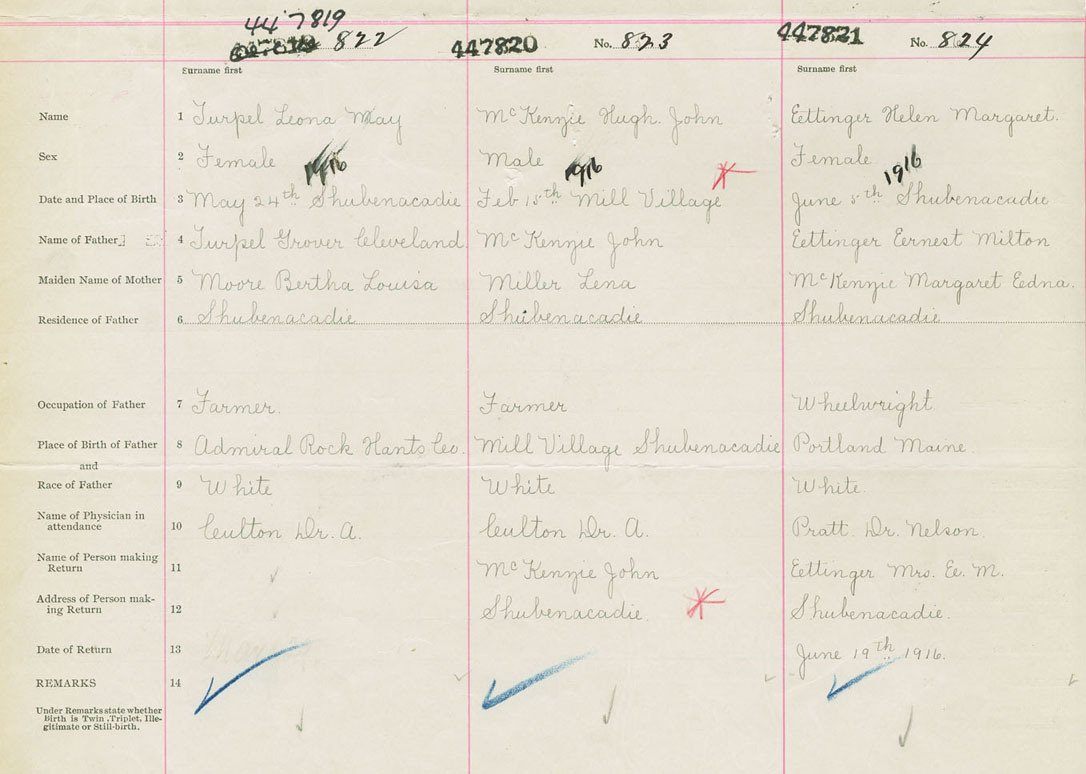 447819 822 447820 No. 823 447821 No. 824
Surname first Surname first Surname first
Name 1 Turpel Leona May McKenzie Hugh John Ettinger Helen Margaret.
Sex 2 Female Male Female
1916 1916 1916
Date and Place of Birth 3 May 24th Shubenacadie Feb 15th Mill Village June 5th Shubenacadie
Name of Father 4 Turpel Grover Cleveland McKenzie John Ettinger Ernest Milton
Maiden Name of Mother 5 Moore Bertha Louisa Miller Lena McKenzie Margaret Edna.
Residence of Father 6 Shubenacadie Shubenacadie Shubenacadie
Occupation of Father 7 Farmer. Farmer Wheelwright
Place of Birth of Father 8 Admiral Rock Hants Co. Mill Village Shubenacadie Portland Maine.
and
Race of Father 9 White White White.
Name of Physician in
attendance 10 Culton Dr. A. Culton Dr. A. Pratt. Dr. Nelson.
Name of Person making
Return 11 McKenzie John Ettinger Mrs. E. M.
Address of Person mak-
ing Return 12 Shubenacadie Shubenacadie.
Date of Return 13 June 19th 1916.
REMARKS 14
Under Remarks state whether
Birth is Twin, Triplet, Ille-
gitimate or Still-birth.